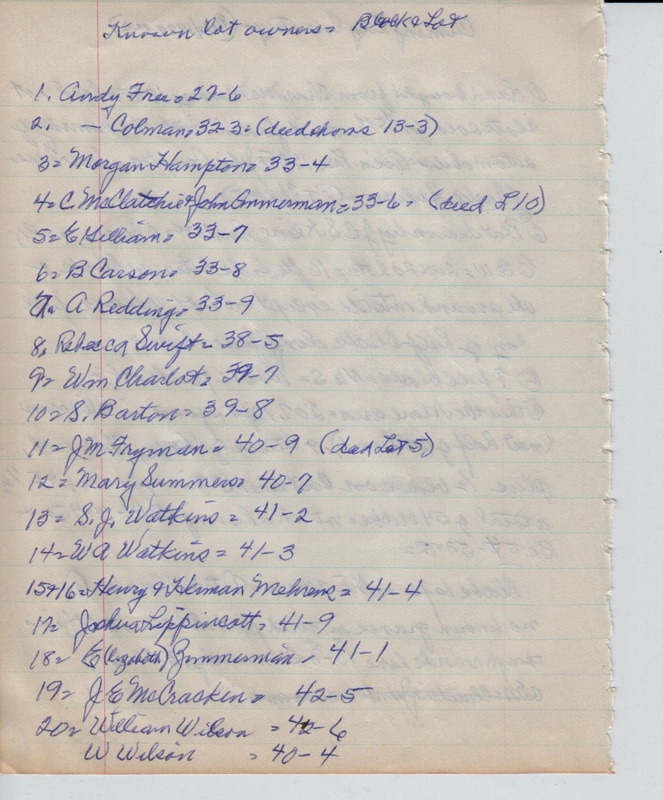 Known lot owners = Block & Lot
1. Andy Free = 27-6
2. — Colman = 32-3 = (deed shows 13-3)
3 = Morgan Hampton = 33-4
4 = C McClatchie & John Ammerman = 33-6 = (deed L 10)
5 = E Killiam = 33-7
6 = B Carson = 33-8
7 = A Redding = 33-9
8. Rebecca Swift = 38-5
9 = Wm Charlot = 39-7
10 = S. Barton = 39-8
11 = J M Fryman = 40-9 (deed Lot 5)
12 = Mary Summers = 40-7
13 = S. J. Watkins = 41-2
14 = W A Watkins = 41-3
15+16 = Henry & Herman Mehrens = 41-4
17 = Joshua Lippinsott = 41-9
18 = E (lizabeth) Zimmerman - 41-1
19 = J E McCracken = 42-5
20 = William Wilson = 42-6
W Wilson = 40-4